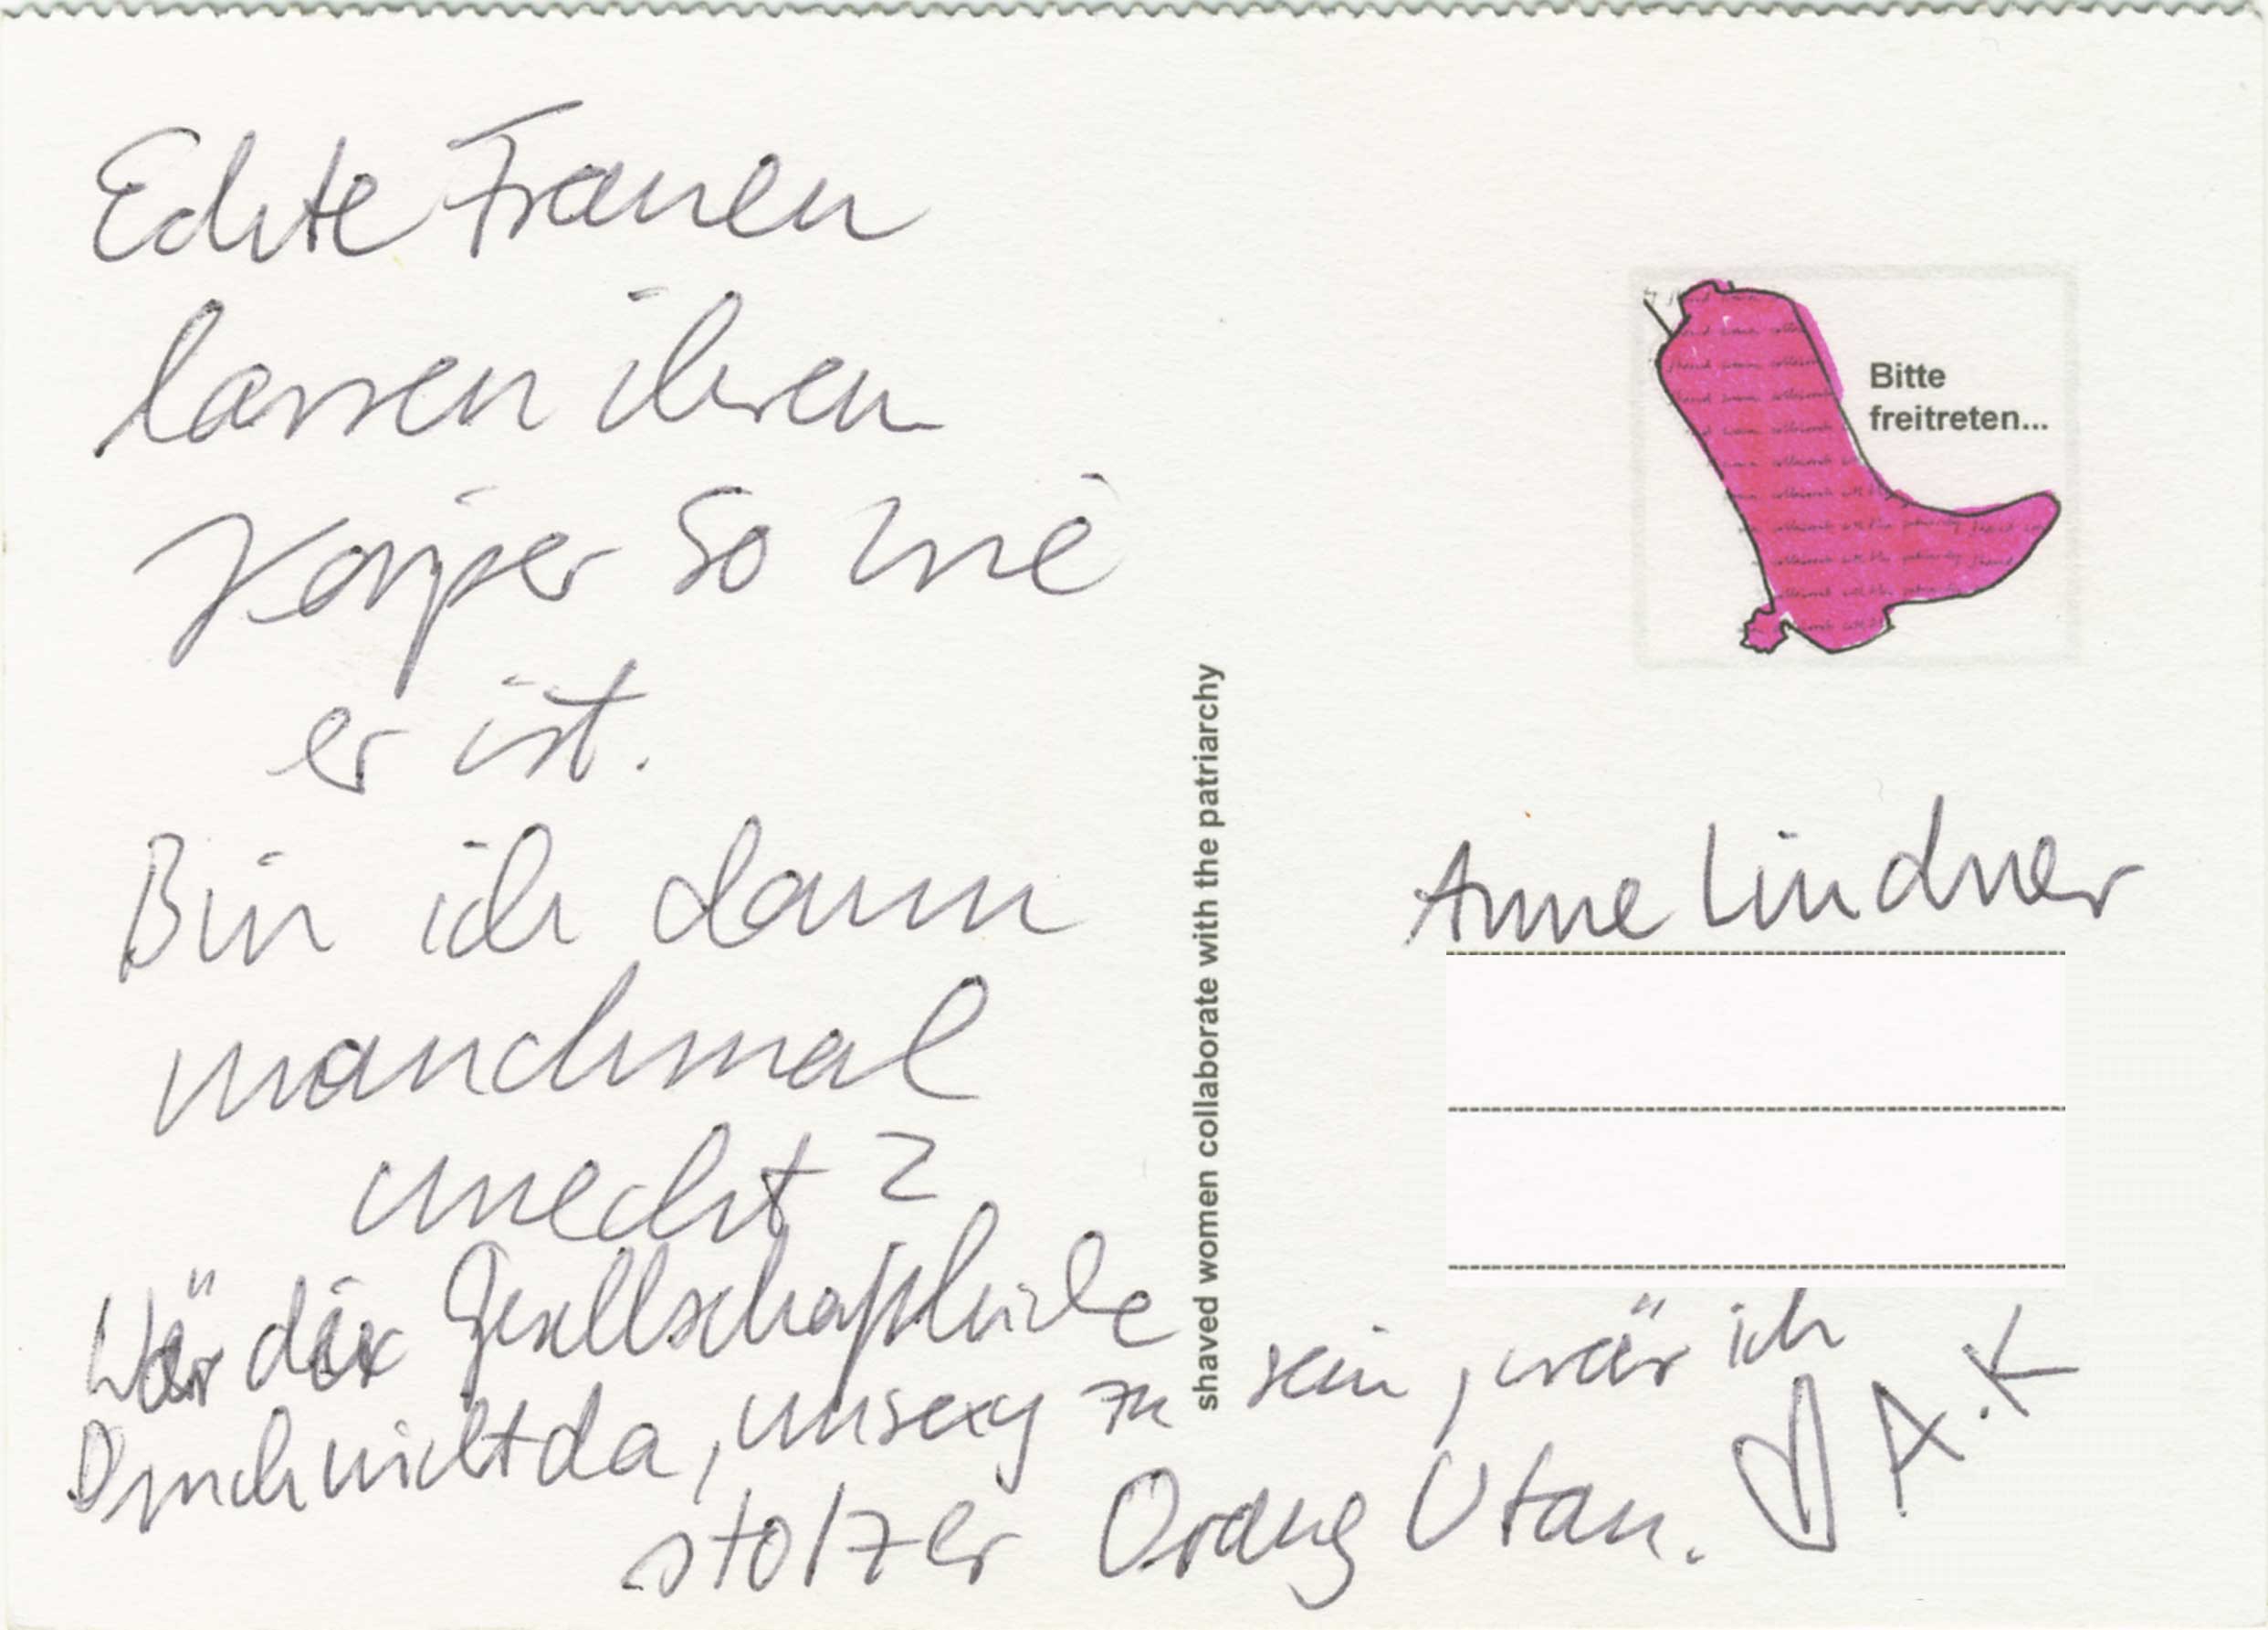 Echte Frauen
lassen ihren
Körper so wie
er ist.
Bin ich dann
manchmal
unecht?
Wär der Gesellschaftliche
Druck nicht da, unsexy zu sein, wär ich
stolzer Orang Utan. ♡ A.K
shaved women collaborate with the patriarchy
Bitte
freitreten...
Anne Lindner